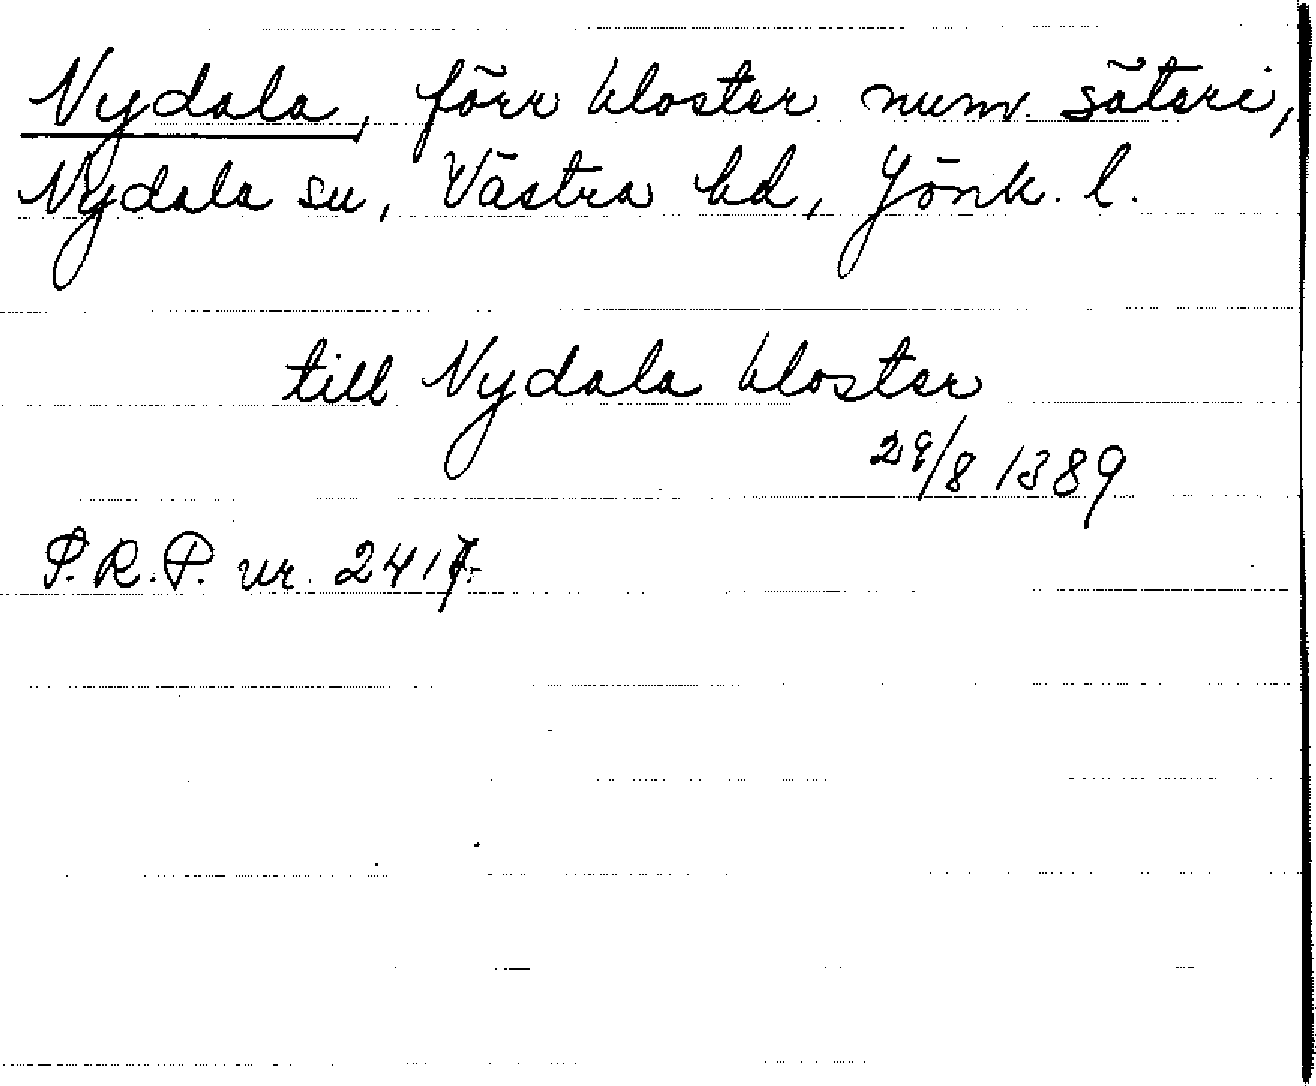 Nydala, förr kloster numv. säteri,
Nydala sn, Västra hd, Jönk. l.
till Nydala kloster
29/8 1389
S.R.P. nr. 2417